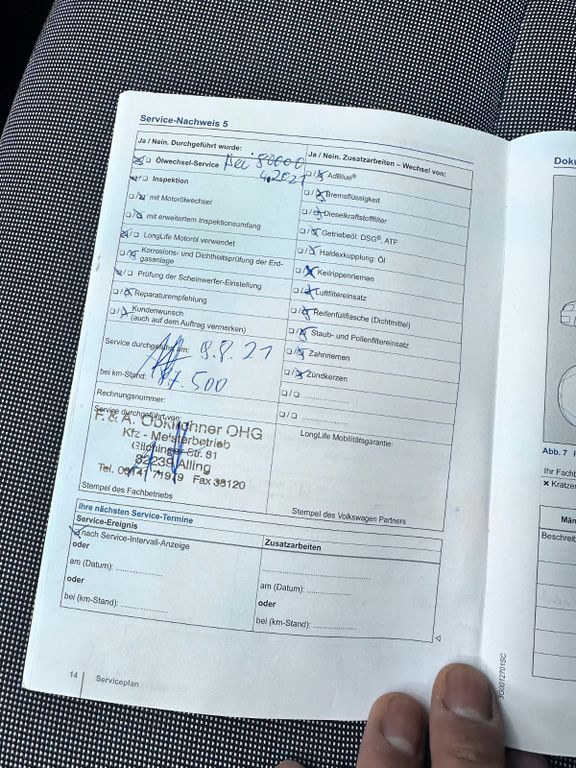 Service-Nachweis 5
Ja / Nein. Durchgeführt wurde:
Ölwechsel-Service bei 80000
4.2021
Inspektion
mit Motorölwechsel
mit erweitertem Inspektionsumfang
LongLife Motoröl verwendet
Korrosions- und Dichtheitsprüfung der Erd-
gasanlage
Prüfung der Scheinwerfer-Einstellung
Reparaturempfehlung
Kundenwunsch
(auch auf dem Auftrag vermerken)
Service durchgeführt am: 9.8.21
bei km-Stand: 87.500
Rechnungsnummer:
Service durchgeführt von:
F. & A. Obkirchner OHG
Kfz - Meisterbetrieb
Str. 81
82239 Alling
Tel. Fax 38120
Stempel des Fachbetriebs
Ja / Nein. Zusatzarbeiten – Wechsel von:
AdBlue®
Bremsflüssigkeit
Dieselkraftstofffilter
Getriebeöl: DSG®, ATF
Haldexkupplung: Öl
Keilrippenriemen
Luftfiltereinsatz
Reifenfüllflasche (Dichtmittel)
Staub- und Pollenfiltereinsatz
Zahnriemen
Zündkerzen
LongLife Mobilitätsgarantie:
Stempel des Volkswagen Partners
Ihre nächsten Service-Termine
Service-Ereignis
nach Service-Intervall-Anzeige
oder
am (Datum): ................
oder
bei (km-Stand): ................
Zusatzarbeiten
am (Datum): ................
oder
bei (km-Stand): ................
14 Serviceplan
3G0012701SC
Doku
Abb. 7
Ihr Fach
× Kratzer
Män
Beschreib